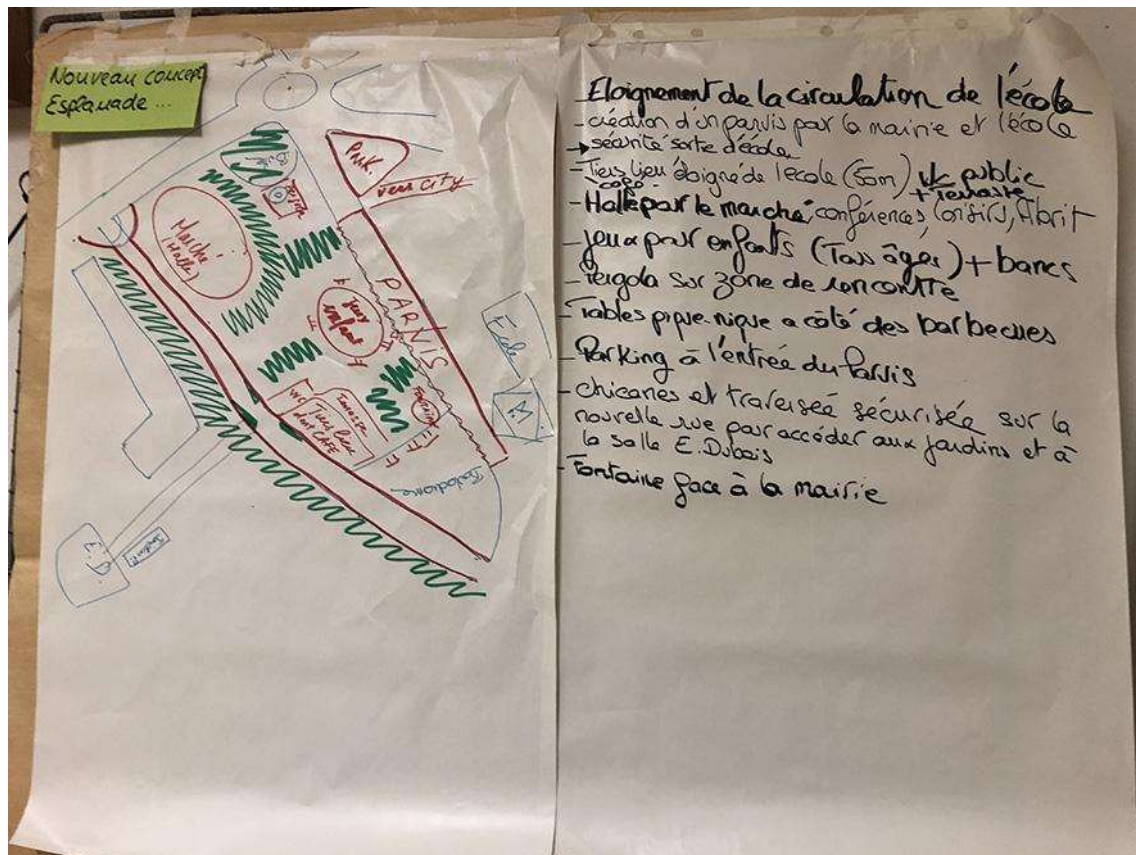 Nouveau concept
Esplanade ...
PARK.
vers CITY
Marché
(Halle)
PARVIS
Jeux
enfant
Ecole
M
WC
Terrasse
Tiers lieu
dont CAFE
Fontaine
Boulodrome
E.D.
Eloignement de la circulation de l'école
- création d'un parvis par la mairie et l'école
→ sécurité sortie d'école
- Tiers lieu éloigné de l'école (50m) WC public
+ Terrasse
- Halle pour le marché conférences, loisirs, Abrit
- jeux pour enfants (Tous âges) + bancs
- Pergola sur zone de rencontre
- Tables pique-nique a côté des barbecues
- Parking à l'entrée du Parvis
- chicanes et traversée sécurisée sur la
nouvelle rue pour accéder aux jardins et à
la salle E. Dubois
- Fontaine face à la mairie